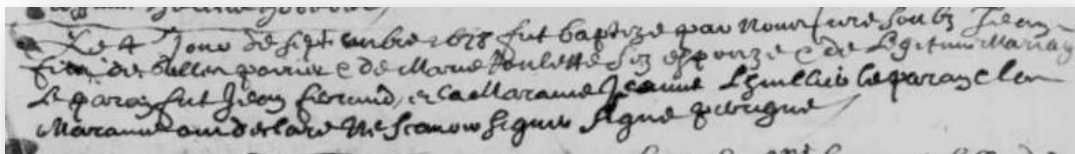 Le 4 Jour de septembre 1678 fut baptizé par nous curé soubz Jean
fils de perrier & de Marie Poulette ses espouze & de Legitime Mariag
Le parain fut Jean & la Maraine Jeanne Le parain & la
Maraine ont declaré Ne Scavoir Signer Signé perigné